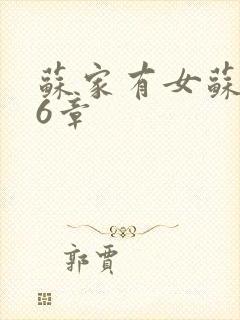 蘇家有女蘇
6章
郭賈